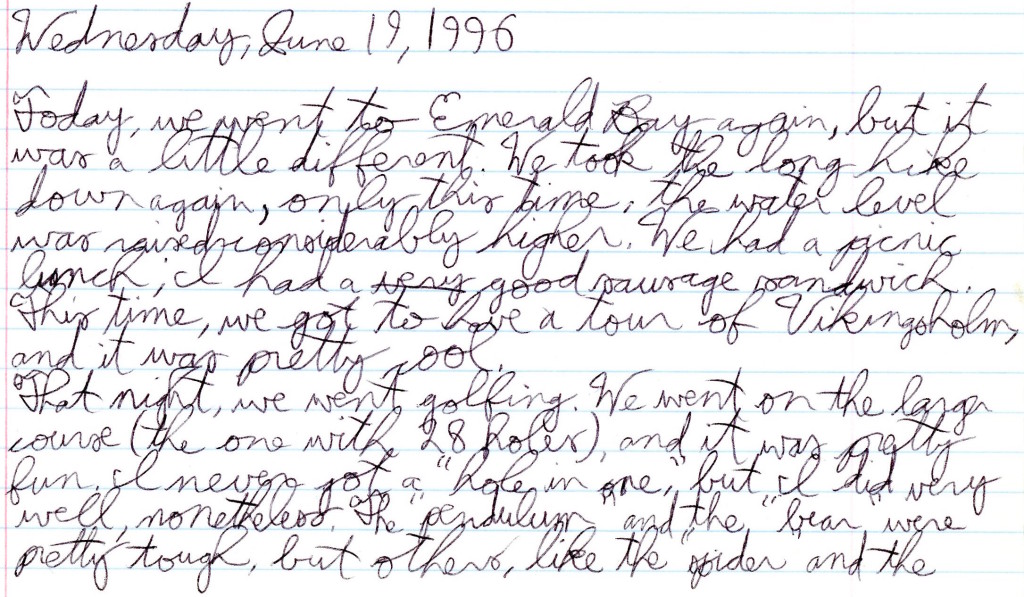 Wednesday, June 19, 1996
Today, we went to Emerald Bay again, but it
was a little different. We took the long hike
down again, only this time, the water level
was raised considerably higher. We had a picnic
lunch; I had a very good sausage sandwich.
This time, we got to have a tour of Vikingsholm,
and it was pretty cool.
That night, we went golfing. We went on the large
course (the one with 28 holes), and it was pretty
fun. I never got a "hole in one," but I did very
well, nonetheless. The "pendulum" and the "bear" were
pretty tough, but others, like the "spider" and the